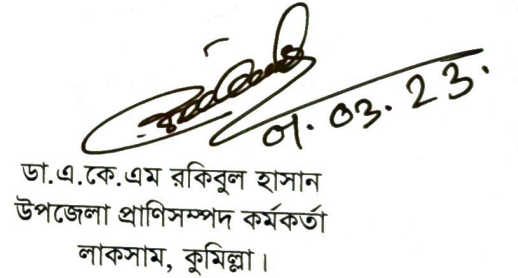 ০৮.০৩.২৩.
ডা.এ.কে.এম রকিবুল হাসান
উপজেলা প্রাণিসম্পদ কর্মকর্তা
লাকসাম, কুমিল্লা।